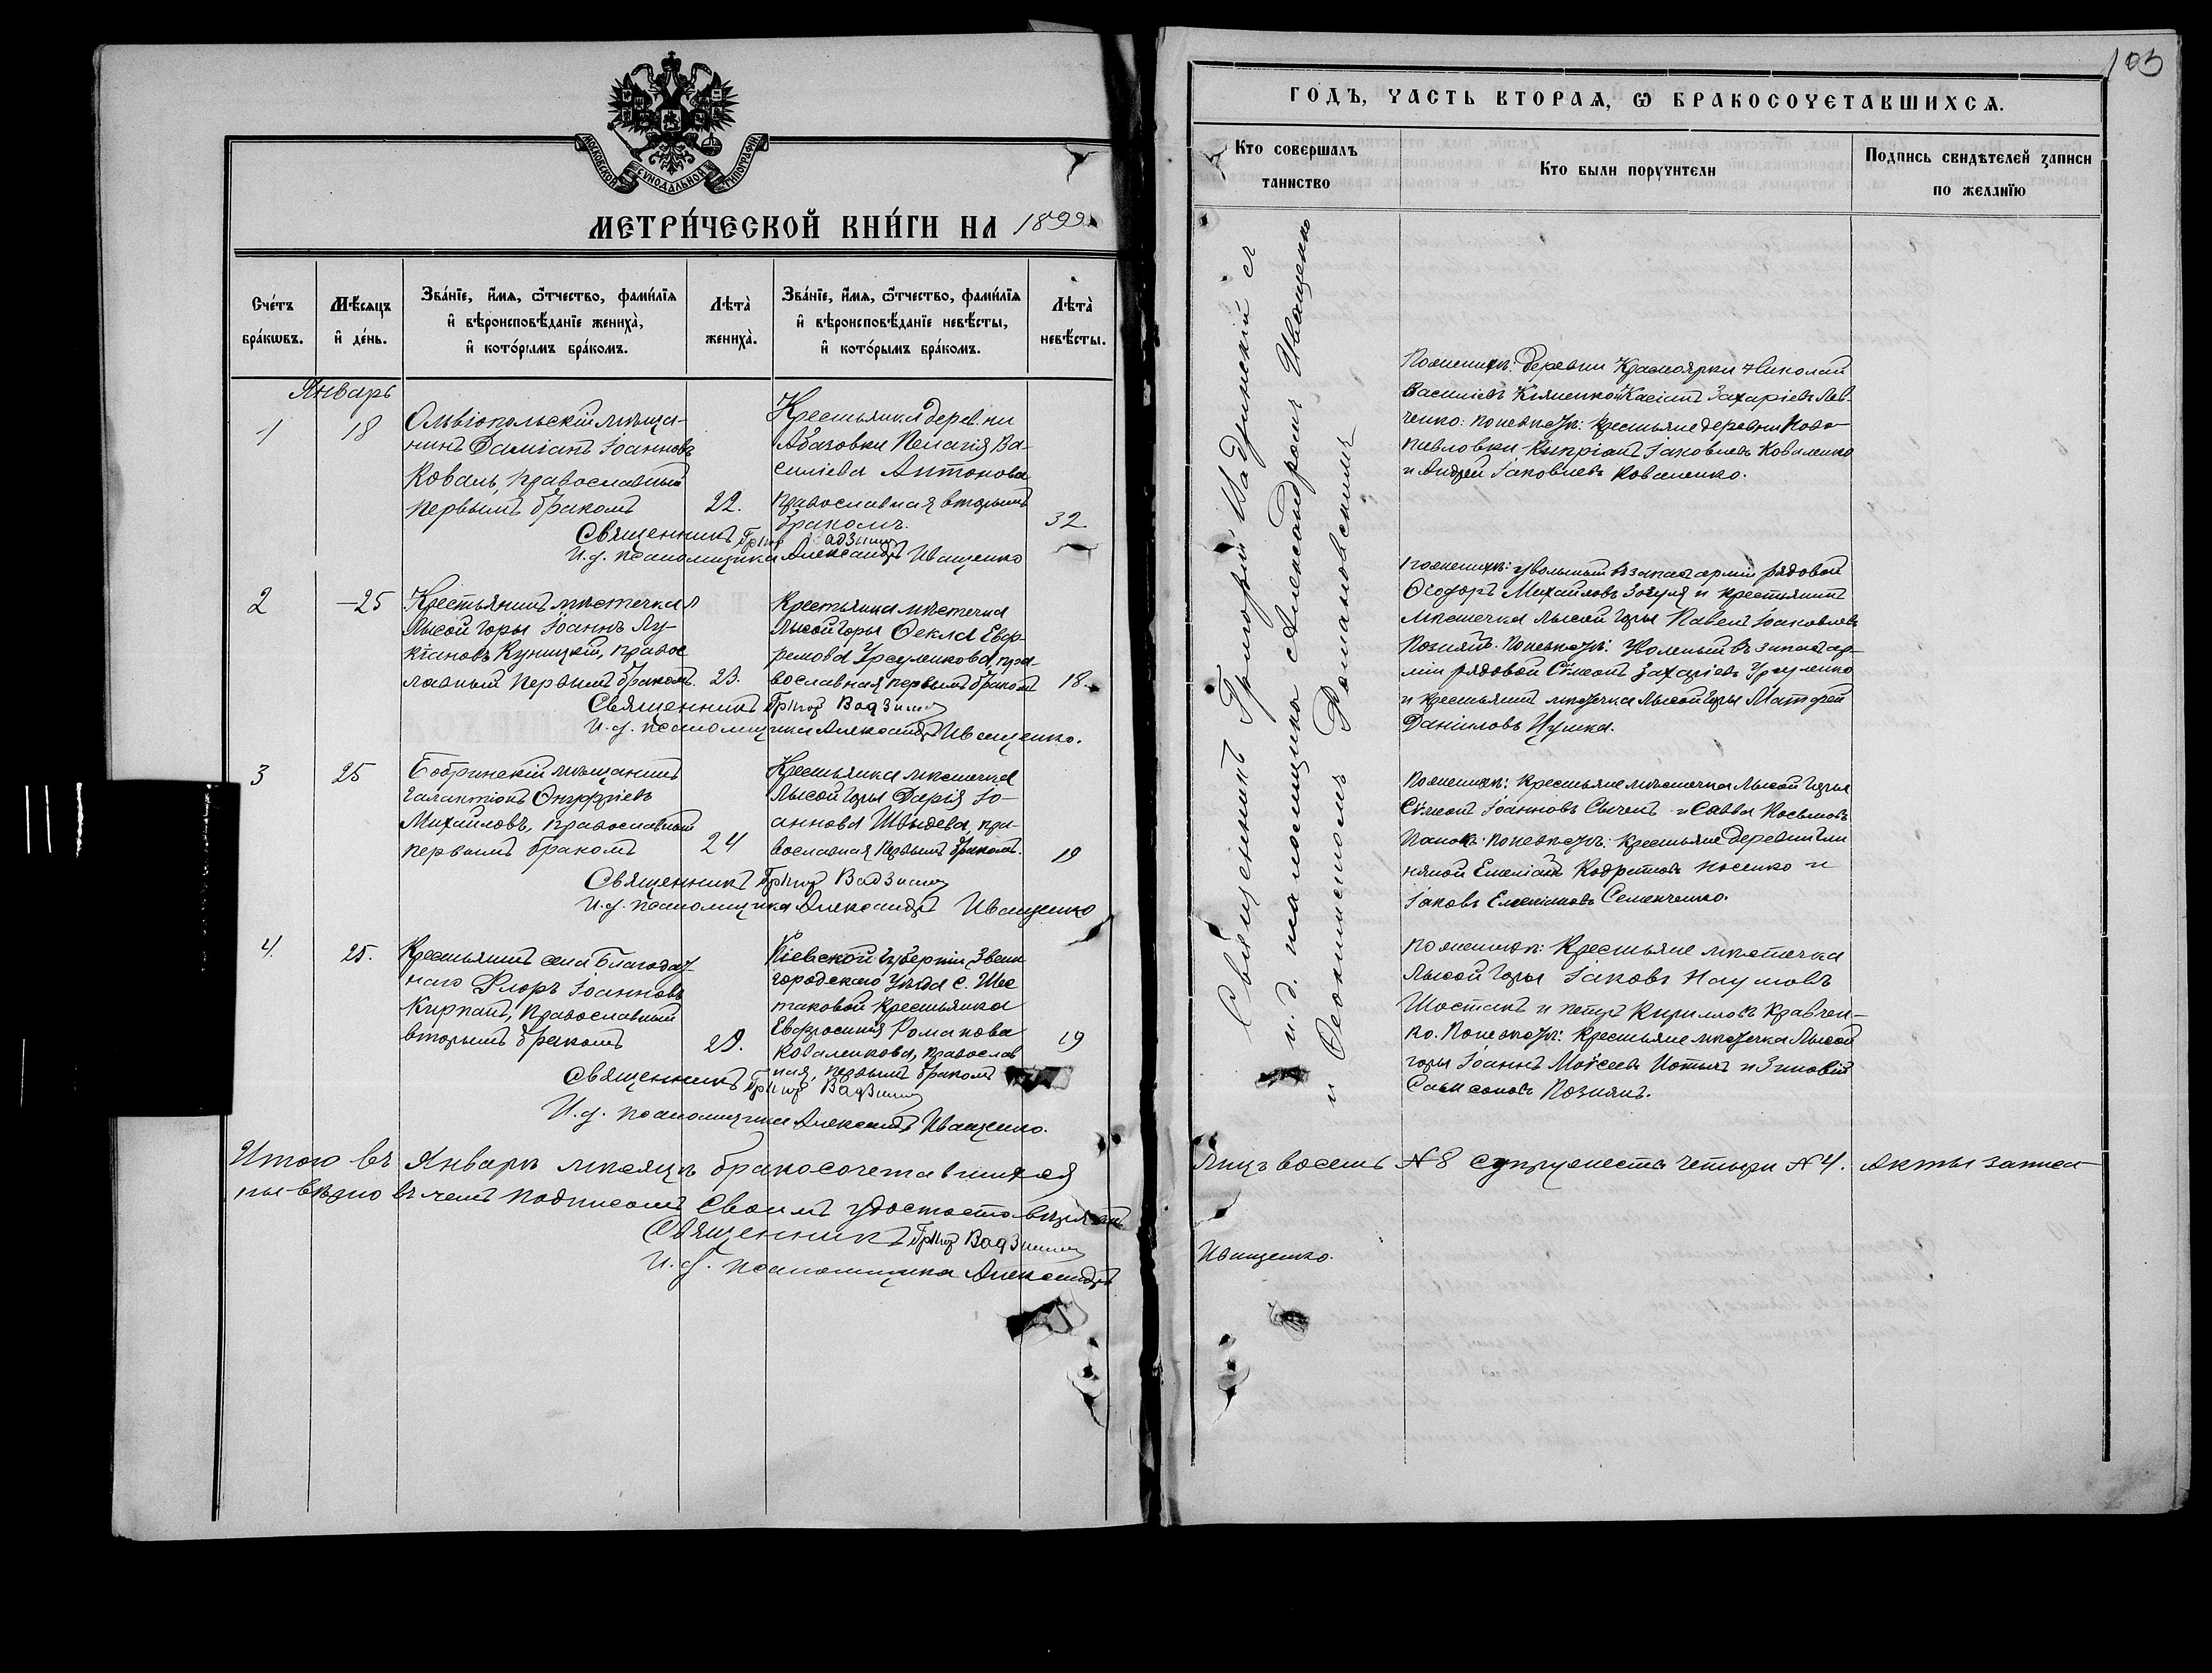 МОСКОВСКОЙ СѴНОДАЛЬНОЙ ТИПОГРАФІИ
МЕТРИ́ЧЕСКОЙ КНИ́ГИ НА 1899
Сче́тъ бра́кѡвъ.
Мѣ́сяцъ и҆ де́нь.
Зва́нїе, и҆́мѧ, ѻ҆́тчество, фами́лїѧ
и҆ вѣроисповѣ́данїе жениха̀,
и҆ кото́рымъ бра́комъ.
Лѣта̀ жениха̀.
Зва́нїе, и҆́мѧ, ѻ҆́тчество, фами́лїѧ
и҆ вѣроисповѣ́данїе невѣ́сты,
и҆ кото́рымъ бра́комъ.
Лѣта̀ невѣ́сты.
Январь
1
18
Ольвіопольскій мѣща-
нинъ Даміанъ Іоанновъ
Коваль, православный
первымъ бракомъ
22.
Крестьянка деревни
Абазовки Пелагія Ва-
силіева Антонова
православная вторымъ
бракомъ.
32
Священникъ
И.д. псаломщика Александръ Иващенко
2
25
Крестьянинъ мѣстечка
Лысой Горы Іоаннъ Лу-
кіановъ Куницкій, правос
лавный первымъ бракомъ.
23.
Крестьянка мѣстечка
Лысой Горы Ѳекла Евф-
ремова Урсуленкова, пра-
вославная первымъ бракомъ
18.
Священникъ
И.д. псаломщика Александръ Иващенко.
3
25
Бобринскій мѣщанинъ
Галактіонъ Онуфріевъ
Михайловъ, православный
первымъ бракомъ
24
Крестьянка мѣстечка
Лысой Горы Дарія Іо-
аннова Швыдева, пра-
вославная первымъ бракомъ.
19
Священникъ
И.д. псаломщика Александръ Иващенко
4.
25.
Крестьянинъ села Благодат-
наго Флоръ Іоанновъ
Кирпанъ, православный
вторымъ бракомъ
29.
Кіевской губерніи, Звени
городскаго уѣзда с. Шес
таковой крестьянка
Евфросинія Романова
Коваленкова, православ
ная, первымъ бракомъ
19
Священникъ
И.д. псаломщика Александръ Иващенко.
Итого въ Январѣ мѣсяцѣ бракосочетавшихся
ны вѣрно въ чемъ подписомъ своимъ удостовѣряемъ
Священникъ
И.д. псаломщика Александръ
103
ГОДЪ, ЧАСТЬ ВТОРАѦ, Ѡ БРАКОСОЧЕТАВШИХСѦ.
Кто совершалъ
таинство
Кто были поручители
Подпись свидѣтелей записи
по желанію
Священникъ Григорій
и.д. псаломщика Александромъ Иващенко
и Романовскимъ
По женихѣ: деревни Красноярки Николай
Василіевъ и Касіанъ Захаріевъ Лев-
ченко: по невѣстѣ: крестьяне деревни Ново-
павловки Кипріанъ Іаковлевъ Коваленко
и Андрей Іаковлевъ Коваленко.
По женихѣ: уволеный въ запасъ арміи рядовой
Ѳеодоръ Михайловъ Зозуля и крестьянинъ
мѣстечка Лысой Горы Павелъ Іаковлевъ
Познякъ. По невѣстѣ: Уволеный въ запасъ ар-
міи рядовой Сѵмеонъ Захаріевъ Урсуленко
и крестьянинъ мѣстечка Лысой Горы Матфей
Даніиловъ Цушка.
По женихѣ: крестьяне мѣстечка Лысой Горы
Сѵмеонъ Іоанновъ Сычевъ и Савва Косьмовъ
По невѣстѣ: крестьяне деревни Гли
няной Емеліанъ Кодратовъ Носенко и
Іаковъ Емеліановъ Семенченко.
По женихѣ: Крестьяне мѣстечка
Лысой Горы Іаковъ Наумовъ
Шостакъ и Петръ Кириловъ Кравчен-
ко. По невѣстѣ: крестьяне мѣстечка Лысой
горы Іоаннъ Моѵсеевъ и Зиновій
Самсоновъ Познякъ.
Лицъ восемь №8 супружествъ четыре №4. Акты записа-
Иващенко.